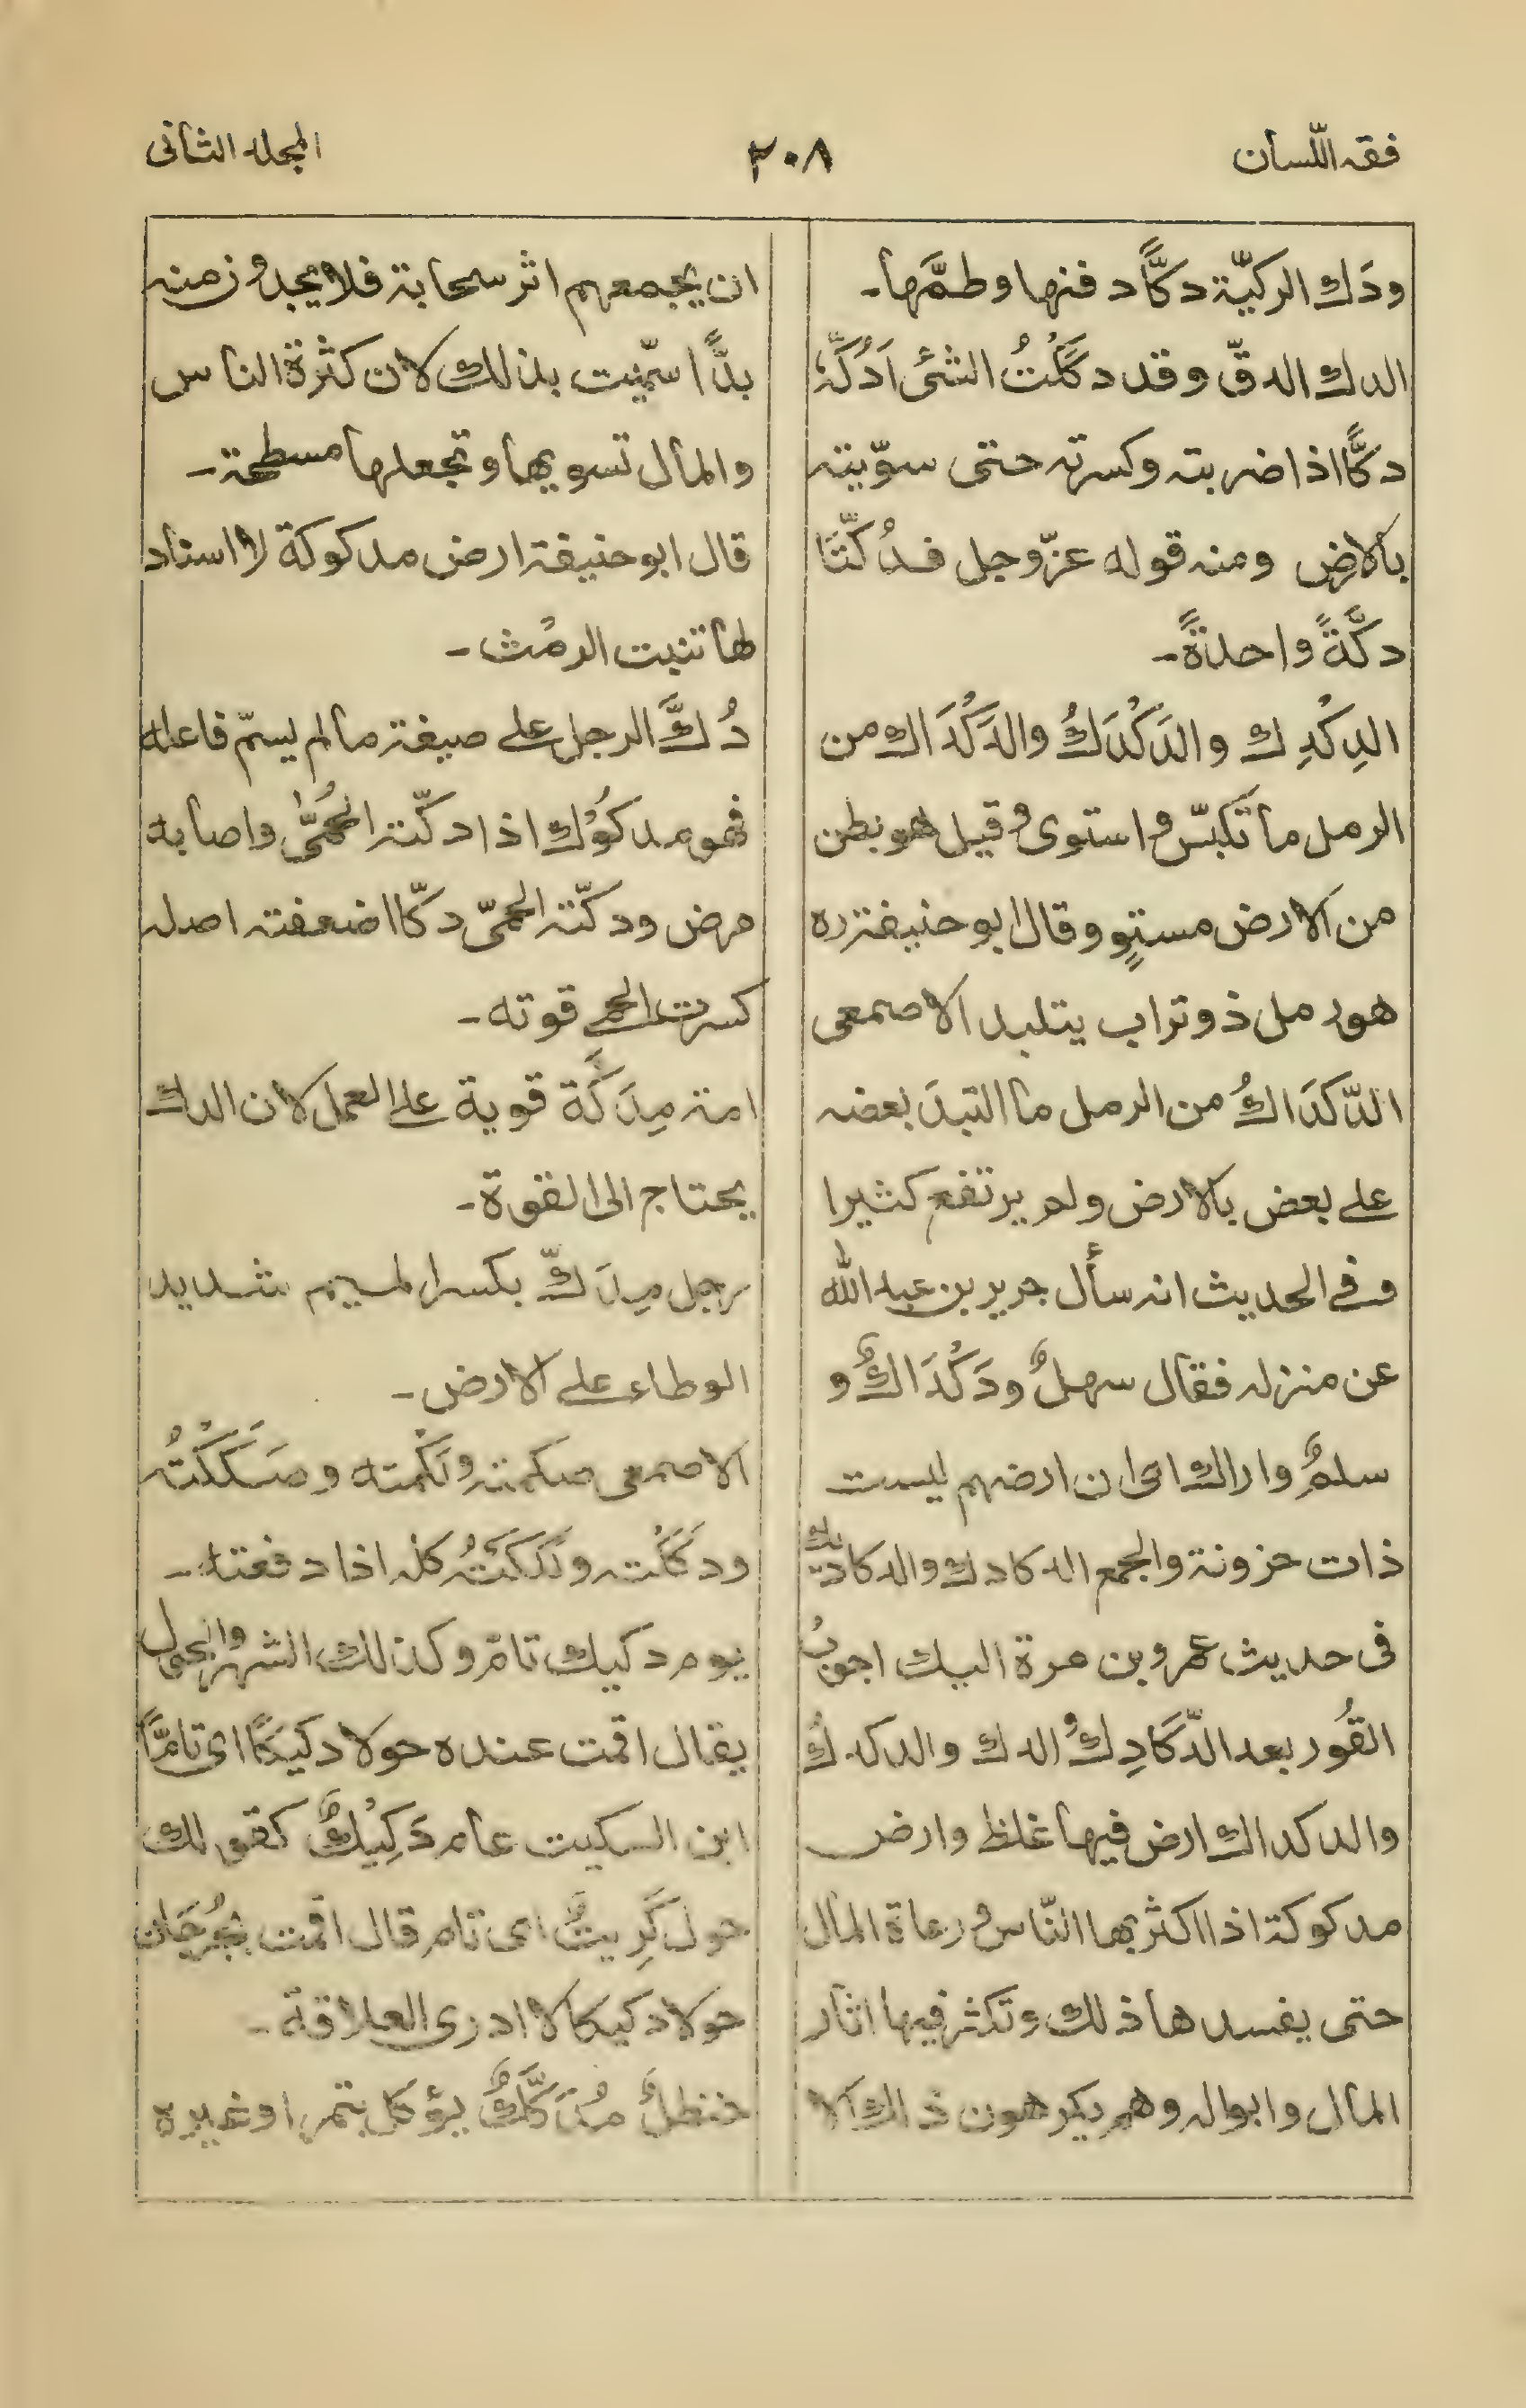 فقه اللّسان
٢٠٨
المجلد الثانى
ودَك الركيّة دكًّا دفنها وطمَّها۔
الدك الدقّ وقد دكَكْتُ الشئ اَدُكّهٗ
دكًّا اذا ضربته وكسرته حتى سوّيته
بالارض ومنه قوله عزّوجل فدُكّتَا
دكَّةً واحدةً۔
الدِكْدِك والدَكْدَكُ والدَكْدَاك من
الرمل ما تَكبّس واستوى وقيل هو بطن
من الارض مستوٍ وقال ابو حنيفة ره
هو رمل ذو تراب يتلبد الاصمعى
الدّكدَاكُ من الرمل ما التبدَ بعضه
على بعض بالارض ولم يرتفع كثيرا
وفى الحديث انه سأل جرير بن عبد الله
عن منزله فقال سهلٌ ودَكْدَاكٌ و
سلمٌ واراك اى ان ارضهم ليست
ذات حزونة والجمع الدكادك والدكاديك
فى حديث عمرو بن مرة اليك اجوبُ
القُور بعد الدّكَادِكُ الدك والدكدكُ
والدكداك ارض فيها غلظ وارض
مدكوكة اذا اكثر بها النّاس ورعاة المال
حتى يفسدها ذلك وتكثر فيها اثار
المال وابواله وهم يكرهون ذلك الا
ان يجمعهم اثر سحابة فلا يجدون منه
بدًّا سمّيت بذلك لان كثرة الناس
والمال تسويها وتجعلها مسطحة۔
قال ابو حنيفة ارض مدكوكة لا اسناد
لها تنبت الرمْث۔
دُكَّ الرجل على صيغة ما لم يسمّ فاعله
فهو مدكوُك اذا دكّته الحُمّٰى واصابه
مرض ودكّته الحمىّ دكّا اضعفته اصله
كسرت الحمى قوته۔
امة مِدَكَّة قوية على العمل لان الدك
يحتاج الى القوة۔
رجل مِدَكٌّ بكسر الميم شديد
الوطاء على الارض۔
الاصمعى صكمته ولَكمته وصَكَكْتُه
ودكَكْته ولكَكتُه كله اذا دفعته۔
يوم دكيك تامّ وكذلك الشهر والحول
يقال اقمت عنده حولا دكيكًا اى تامًّا
ابن السكيت عام دَكِيْكٌ كقولك
حول كَرِيتٌ اى تام قال اقمت بجُرجَان
حولا دكيكا لا ادرى العلاقة۔
حنظلٌ مُدَكَّكٌ يؤكل بتمر او غيره